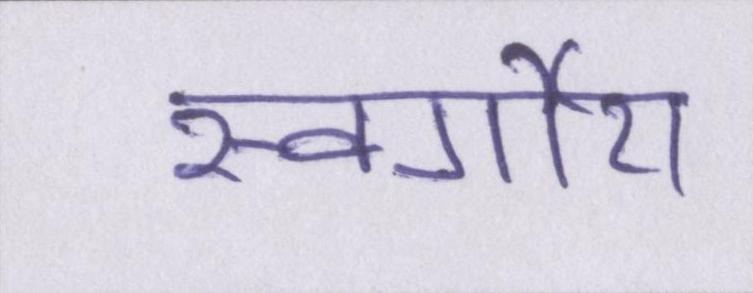 स्वर्गीय